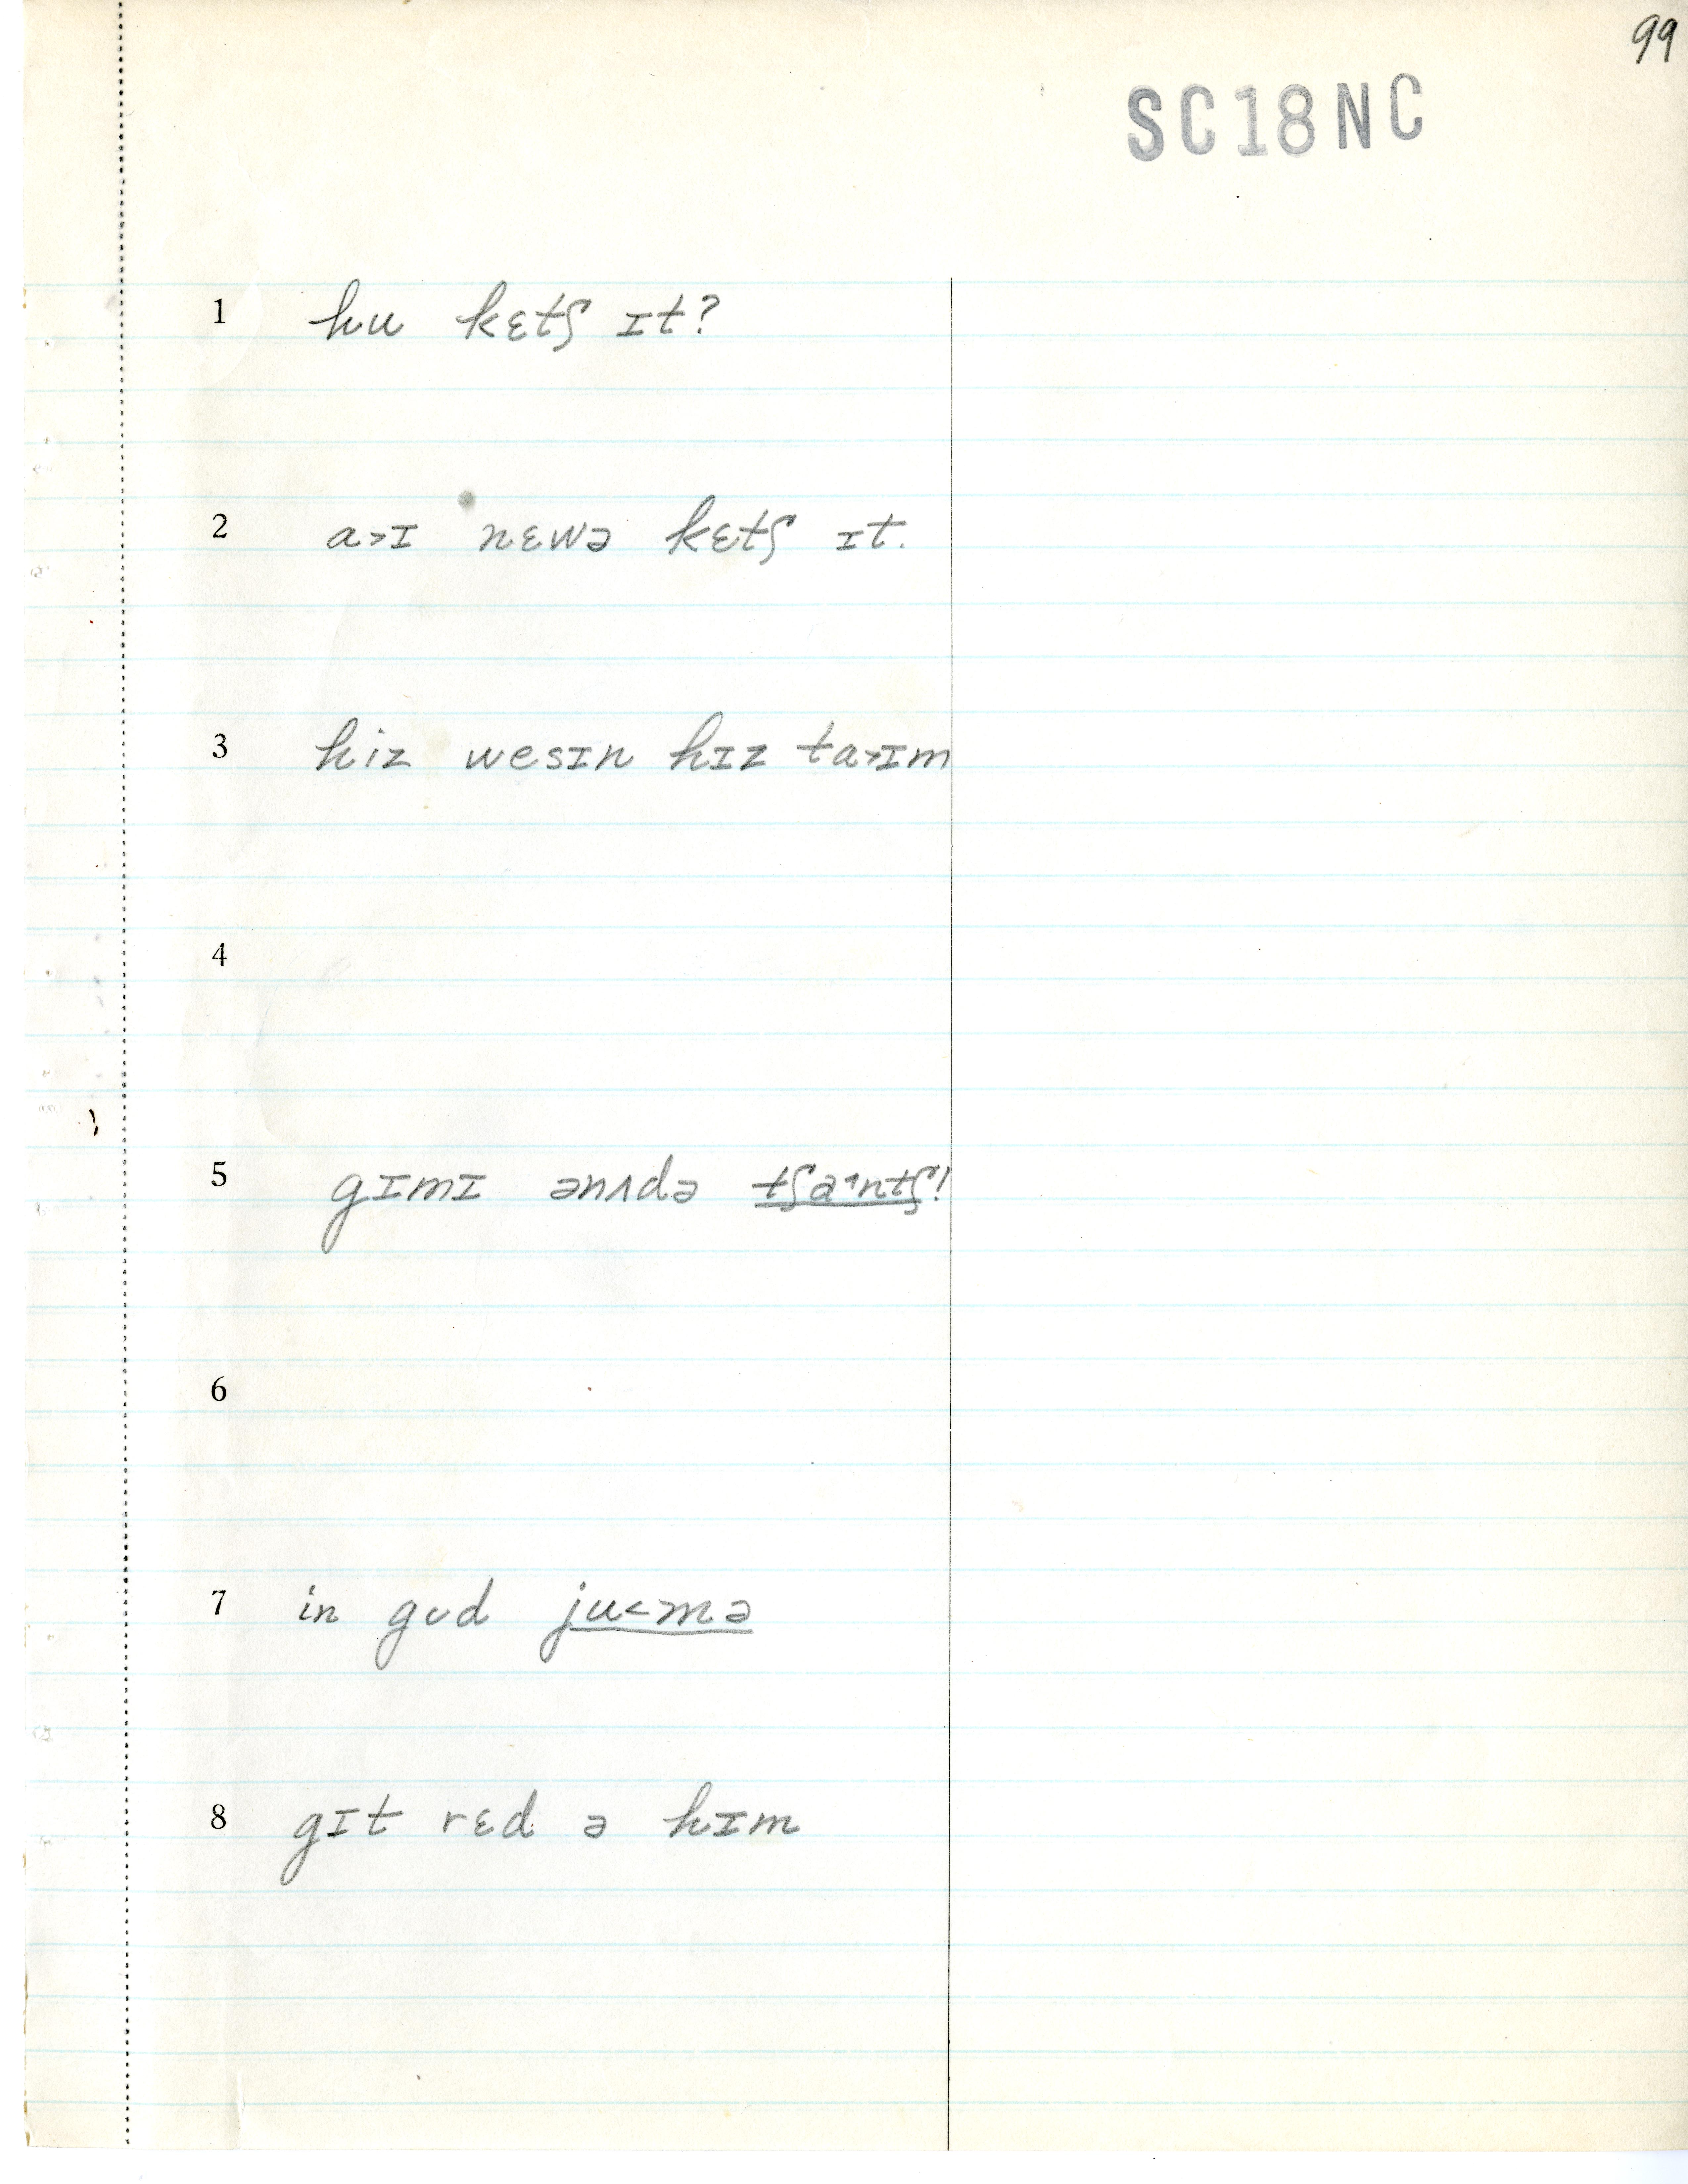 99
SC18NC
1 hu kɛtʃ ɪt?
2 a˃ɪ nɛwə kɛtʃ ɪt.
3 hiz wesɪn hɪz ta˃ɪm
4
5 gɪmɪ ənʌdə tʃa˔ntʃ!
6
7 in gʊd ju˂mə
8 gɪt rɛd ə hɪm